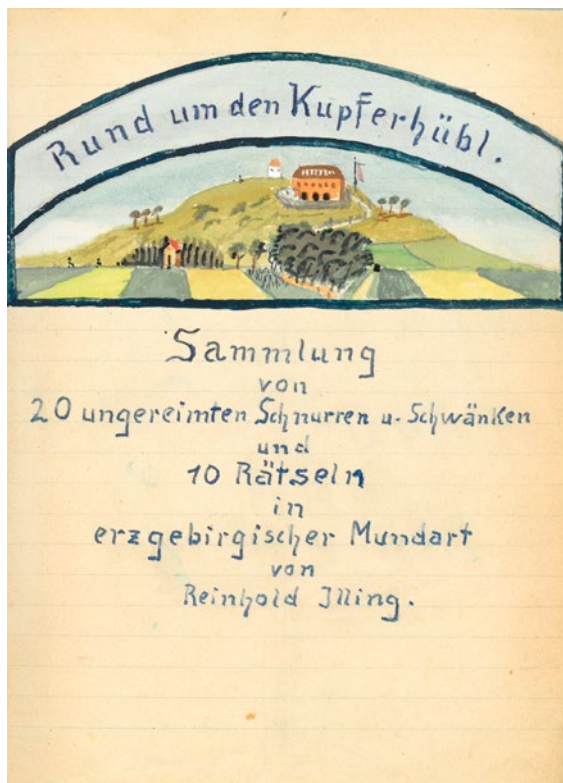 Rund um den Kupferhübl.
Sammlung
von
20 ungereimten Schnurren u. Schwänken
und
10 Rätseln
in
erzgebirgischer Mundart
von
Reinhold Illing.